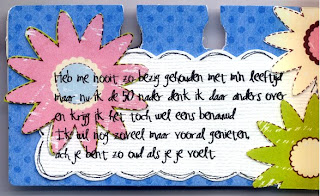 Heb me nooit zo bezig gehouden met m'n leeftijd
maar nu ik de 50 nader denk ik daar anders over
en krijg ik het toch wel eens benauwd
Ik wil nog zoveel maar vooral genieten
ach je bent zo oud als je je voelt